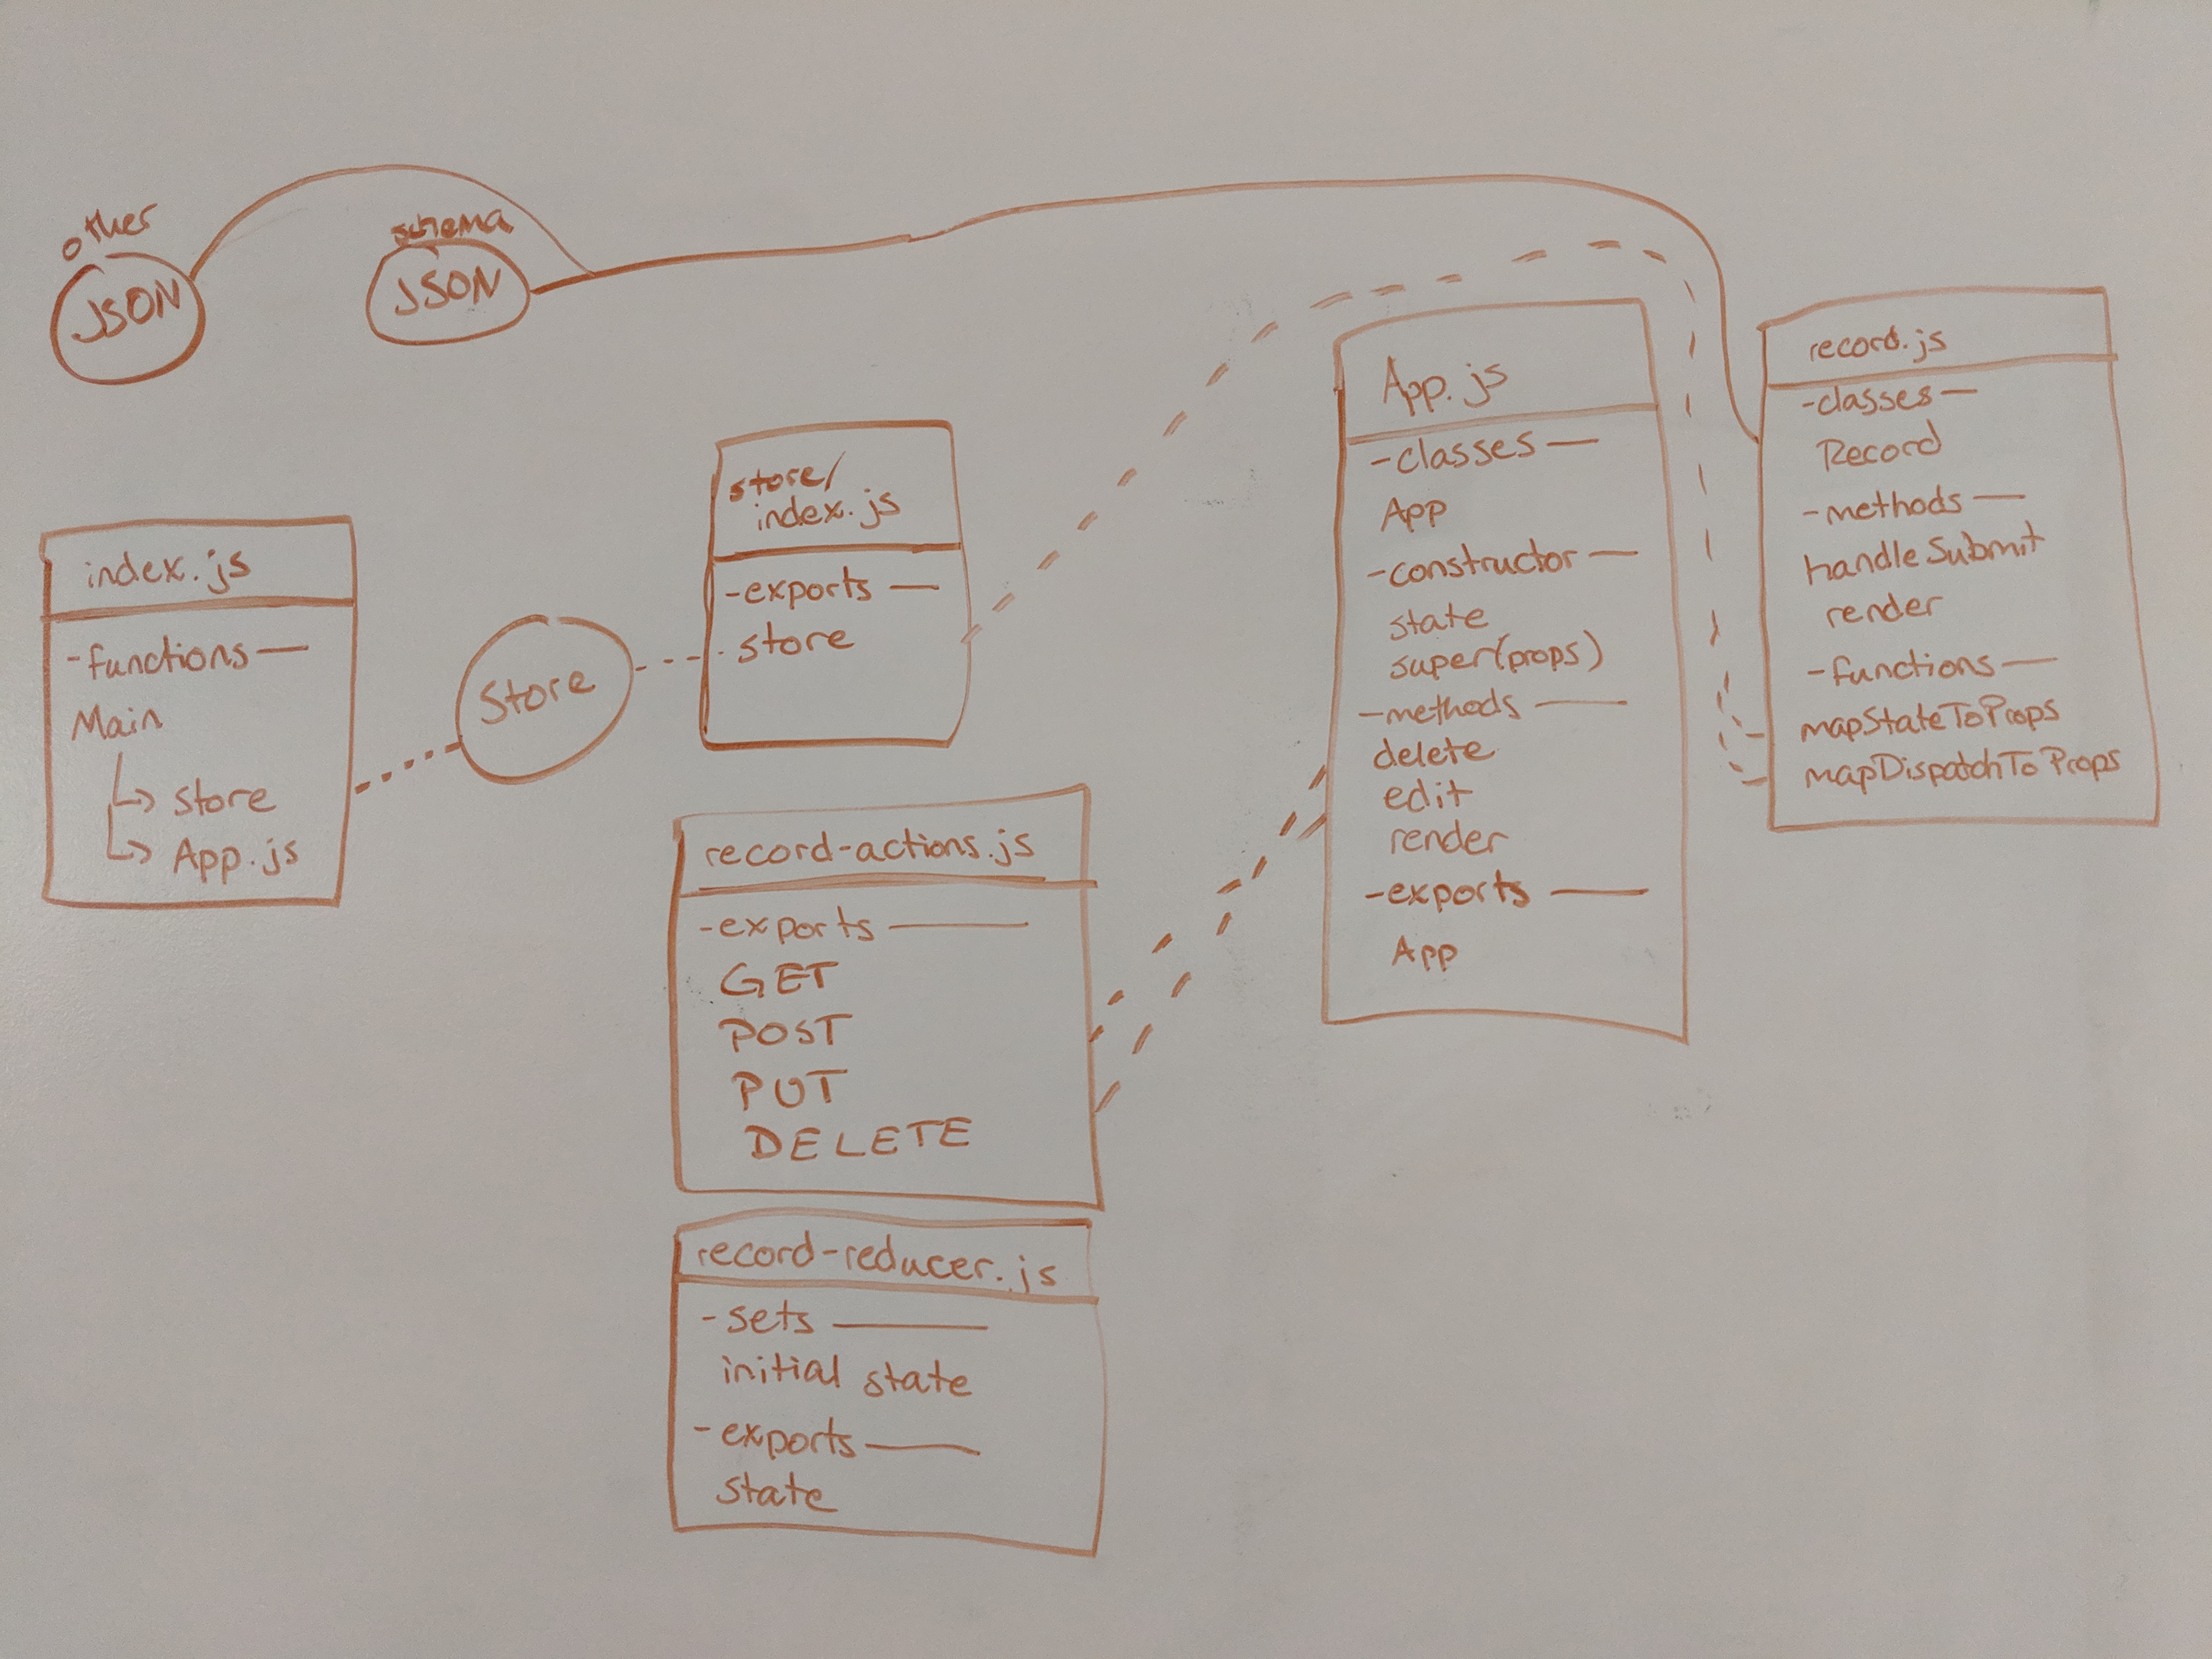 other
JSON
schema
JSON
index.js
-functions—
Main
↳ store
↳ App.js
Store
store/
index.js
-exports—
store
record-actions.js
-exports—
GET
POST
PUT
DELETE
record-reducer.js
-sets—
initial state
-exports—
state
App.js
-classes—
App
-constructor—
state
super(props)
-methods—
delete
edit
render
-exports—
App
record.js
-classes—
Record
-methods—
handleSubmit
render
-functions—
mapStateToProps
mapDispatchToProps